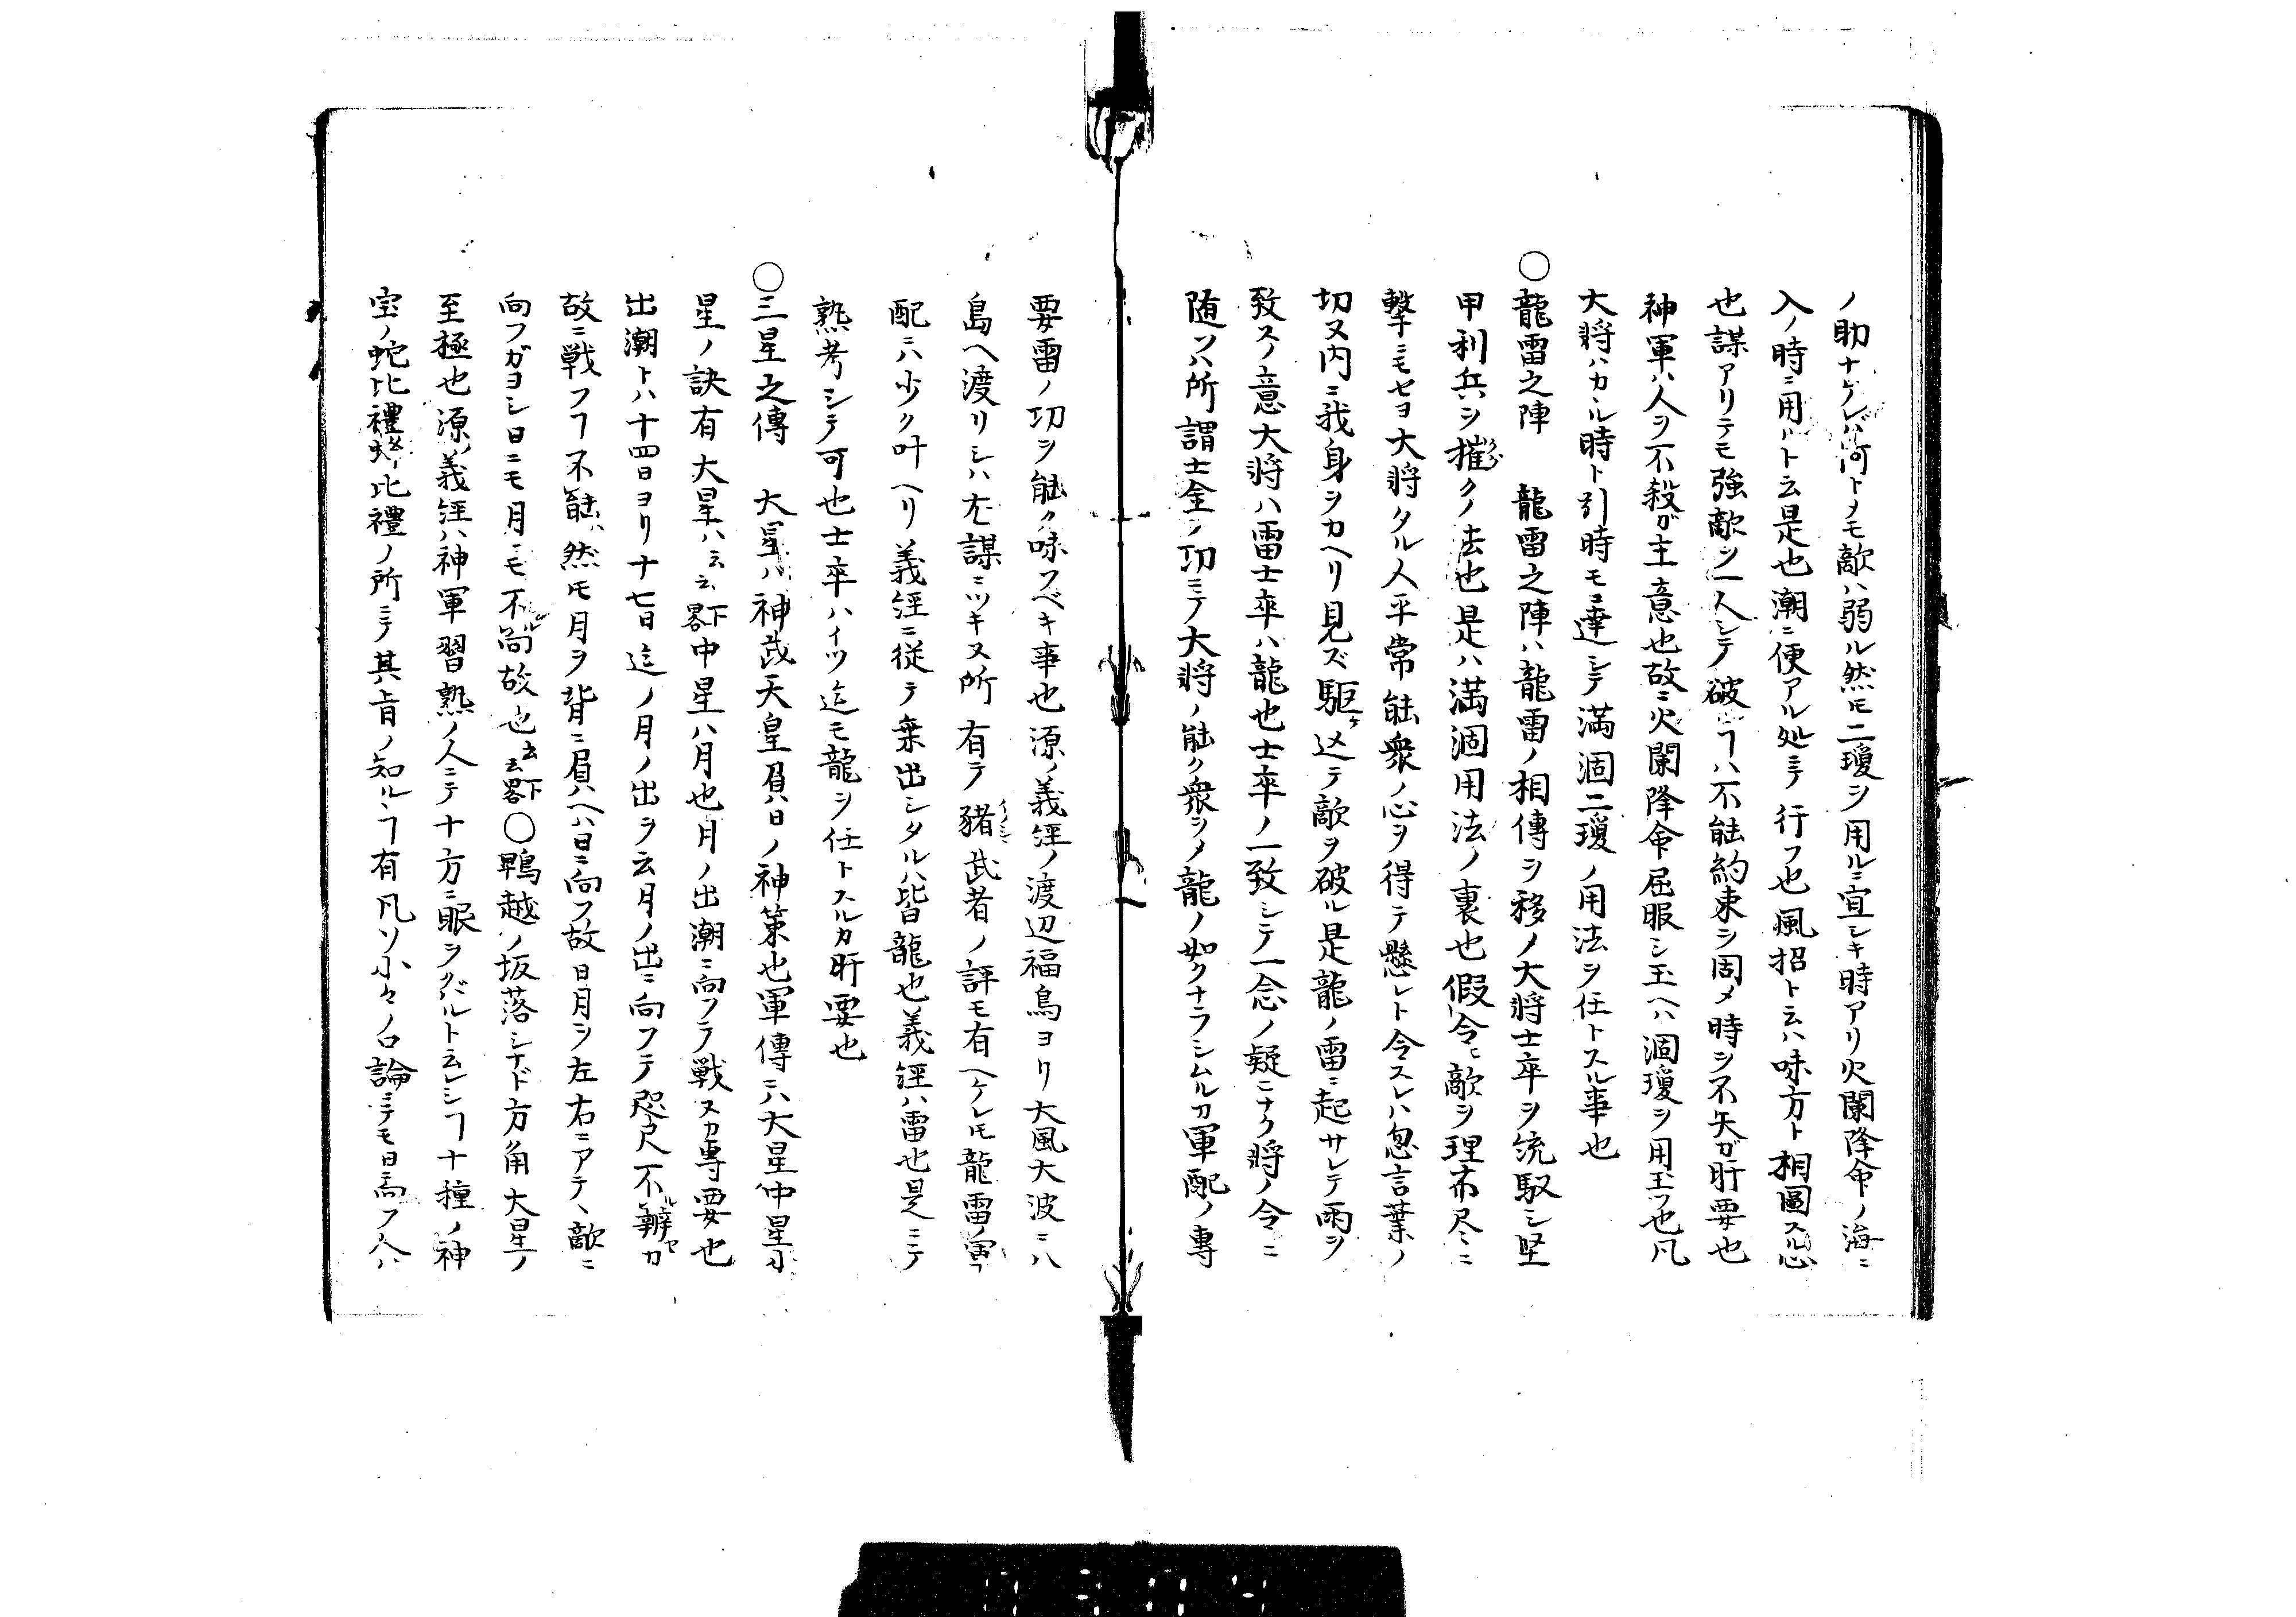 ノ助ナケレバ何トメモ敵ハ弱ル然ヒ二瓊ヲ用ルニ宜シキ時アリ火闌降命ノ海ニ
入ノ時ニ用ルト云是也潮ニ便アル処ニテ行フ也風招ト云ハ味方ト相圖スル心
也謀アリテモ強敵ヲ一人シテ破ヿハ不能約束ヲ固メ時ヲ不矢ガ肝要也
神軍ハ人ヲ不殺ガ主意也故ニ火闌降命屈服シ玉ヘハ涸瓊ヲ用玉フ也凡
大将ハカル時ト引時モニ達シテ満涸二瓊ノ用法ヲ任トスル事也
〇龍雷之陣 龍雷之陣ハ龍雷ノ相傳ヲ移ノ大将士卒ヲ流馭シ堅
甲利兵ヲ摧クノ法也是ハ満涸用法ノ裏也假令ヒ敵ヲ理不尽ニ
撃ニモセヨ大将タル人平常能衆ノ心ヲ得テ懸レト令スレハ忽言葉ノ
切又内ニ我身ヲカヘリ見ズ駆ケ込テ敵ヲ破ル是龍ノ雷ニ起サレテ雨ヲ
致スノ意大将ハ雷士卒ハ龍也士卒ノ一致シテ一念ノ疑ニナク将ノ令ニ
随フハ所謂士金ノ功ニテ大将ノ能ク衆ヲメ龍ノ如クナラシムルカ軍配ノ專
要雷ノ功ヲ能ク味フベキ事也源ノ義經ノ渡辺福島ヨリ大風大波ニ八
島ヘ渡リシハ尤謀ミツキヌ所有テ豬武者ノ評モ有ヘケレヒ龍雷ノ寅ヿ
配ニハ少ク叶ヘリ義經ニ従テ乗出シタルハ皆龍也義經ハ雷也是ニテ
熟考シテ可也士卒ハイツ迄モ龍ヲ任トスルカ肝要也
〇三星之傳 大星ハ神武天皇負日ノ神策也軍傳ニハ大星中星小
星ノ訣有大星ハ云云下畧中星ハ月也月ノ出潮ニ向フテ戦ヌカ專要也
出潮トハ十四日ヨリ十七日迄ノ月ノ出ヲ云月ノ出ニ向フテ咫尺不辨セカ
故ニ戦フヿ不能ハ然ヒ月ヲ背ニ負ヘハ日ニ向フ故日月ヲ左右ニアテヽ敵ニ
向フガヨシ日ニモ月ニモ不向故也云云下畧〇鵯越ノ坂落シナド方角大星ノ
至極也源義經ハ神軍習熟ノ人ニテ十方ニ眼ヲクバルト云レシヿ十種ノ神
宝ノ蛇比禮蜂比禮ノ所ニテ其旨ノ知ルヽヿ有凡ソ小々ノ口論ニテモ日ニ向フ人ハ